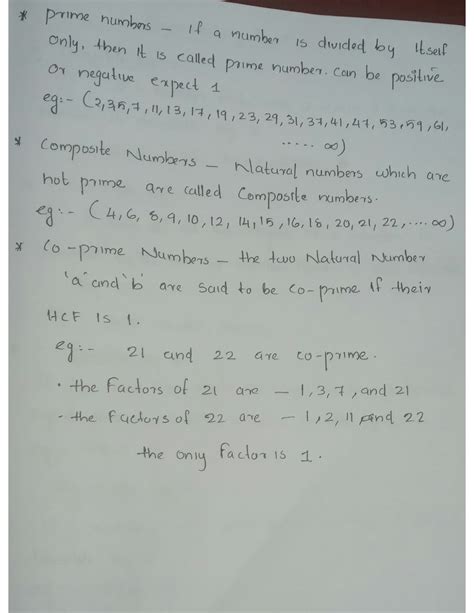 * Prime numbers - If a number is divided by Itself
only, then it is called prime number. can be positive
or negative expect 1
eg:- (2,3,5,7,11,13,17,19,23,29,31,37,41,47,53,59,61,
..... ∞)
* Composite Numbers - Natural numbers which are
not prime are called Composite numbers.
eg:- (4,6,8,9,10,12,14,15,16,18,20,21,22,....∞)
* Co-prime Numbers - the two Natural Number
'a' and 'b' are said to be co-prime if their
HCF is 1.
eg:- 21 and 22 are co-prime.
• the Factors of 21 are - 1,3,7, and 21
- the Factors of 22 are - 1,2,11 and 22
the only factor is 1.